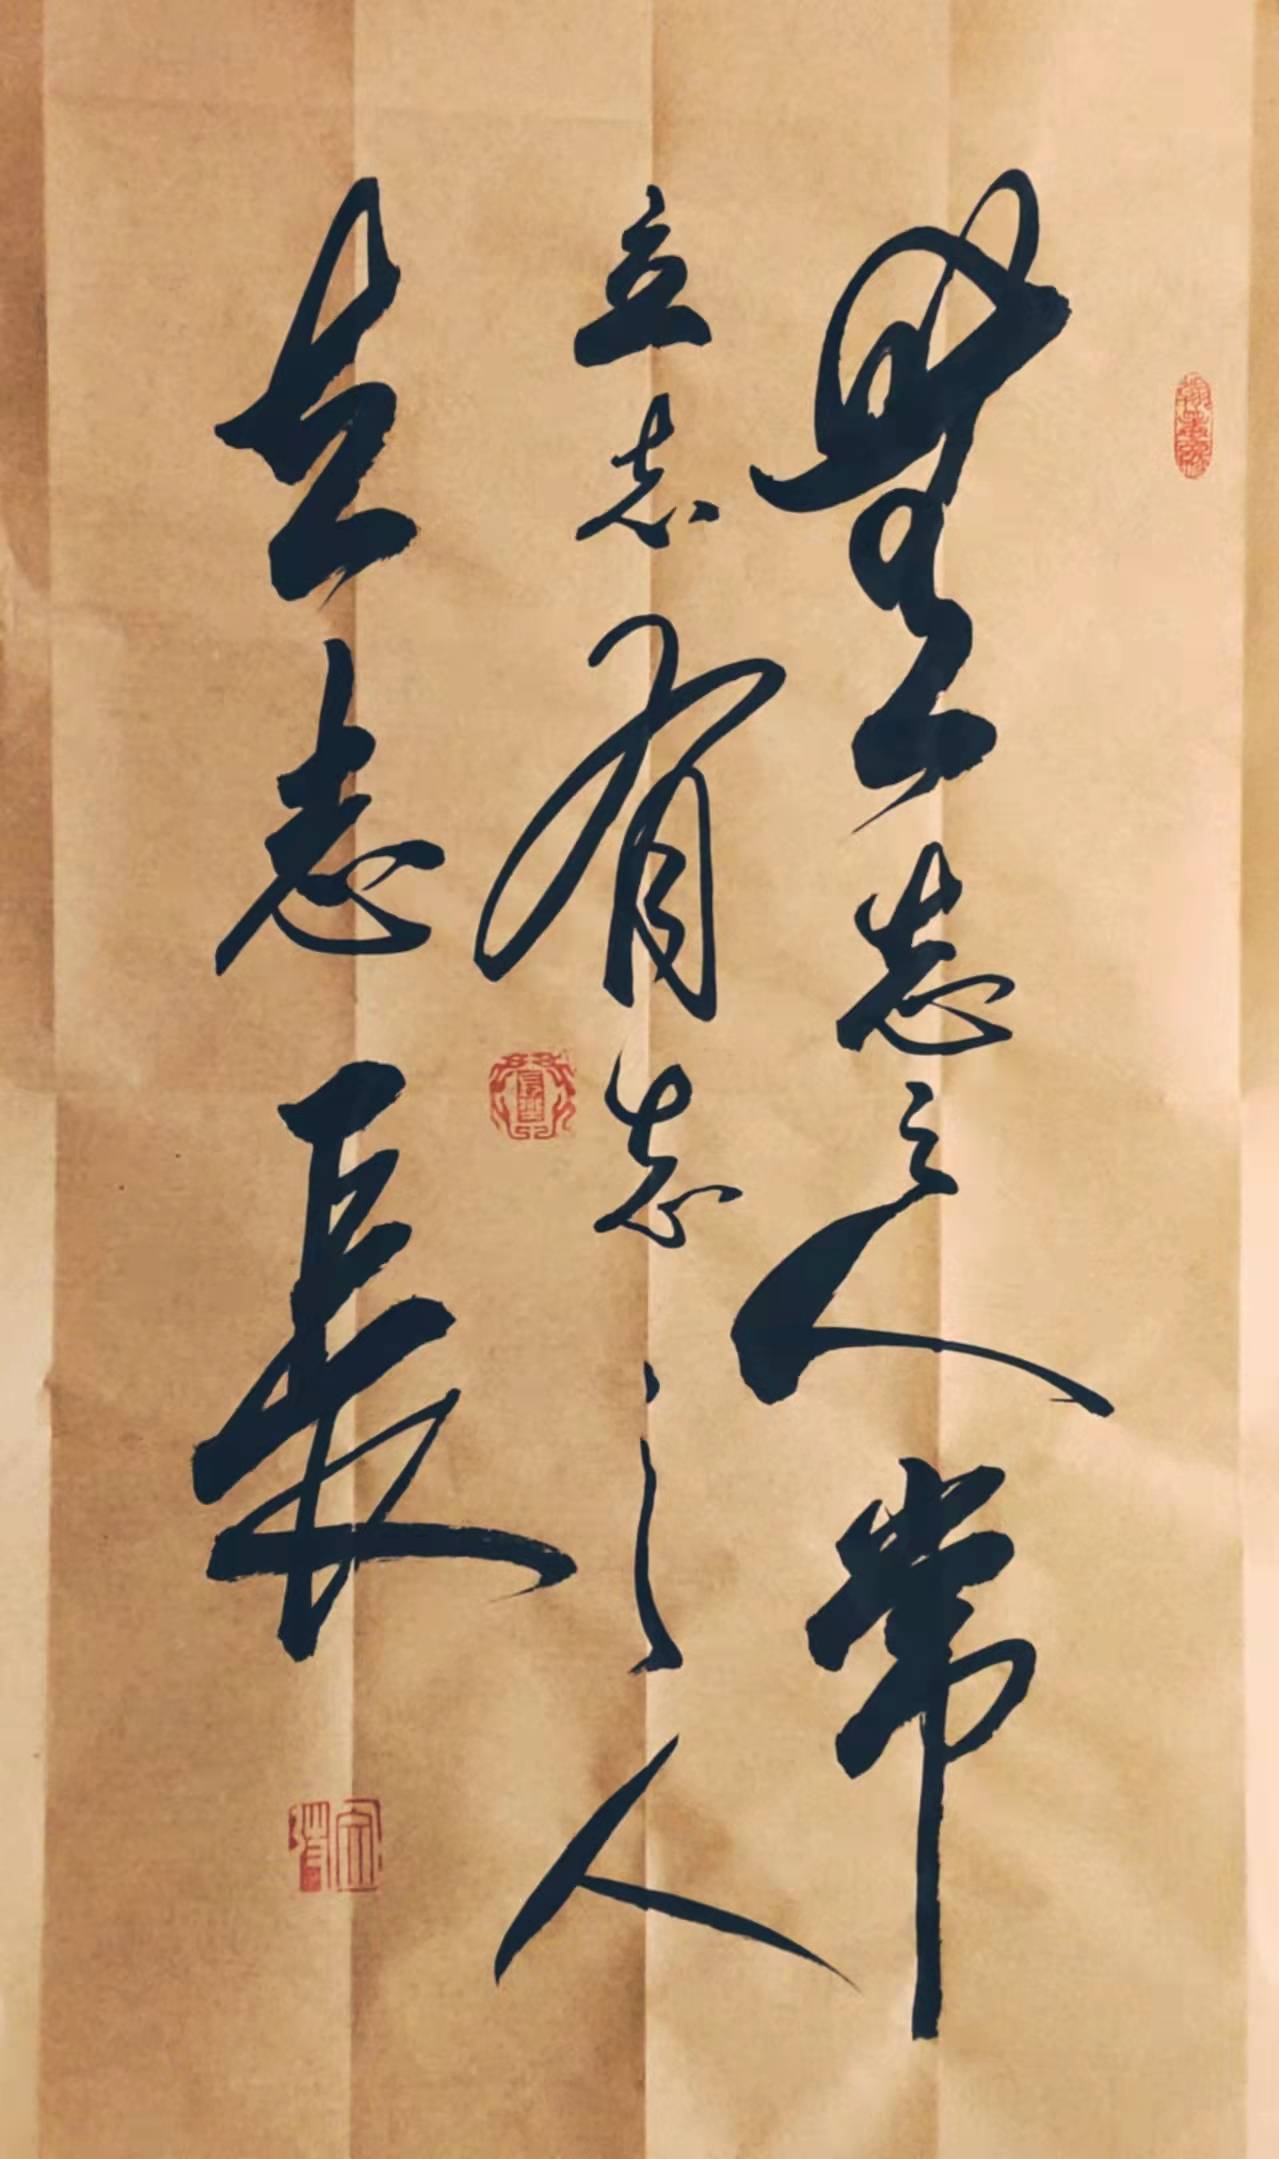 無志之人常
立志有志之人
立志長